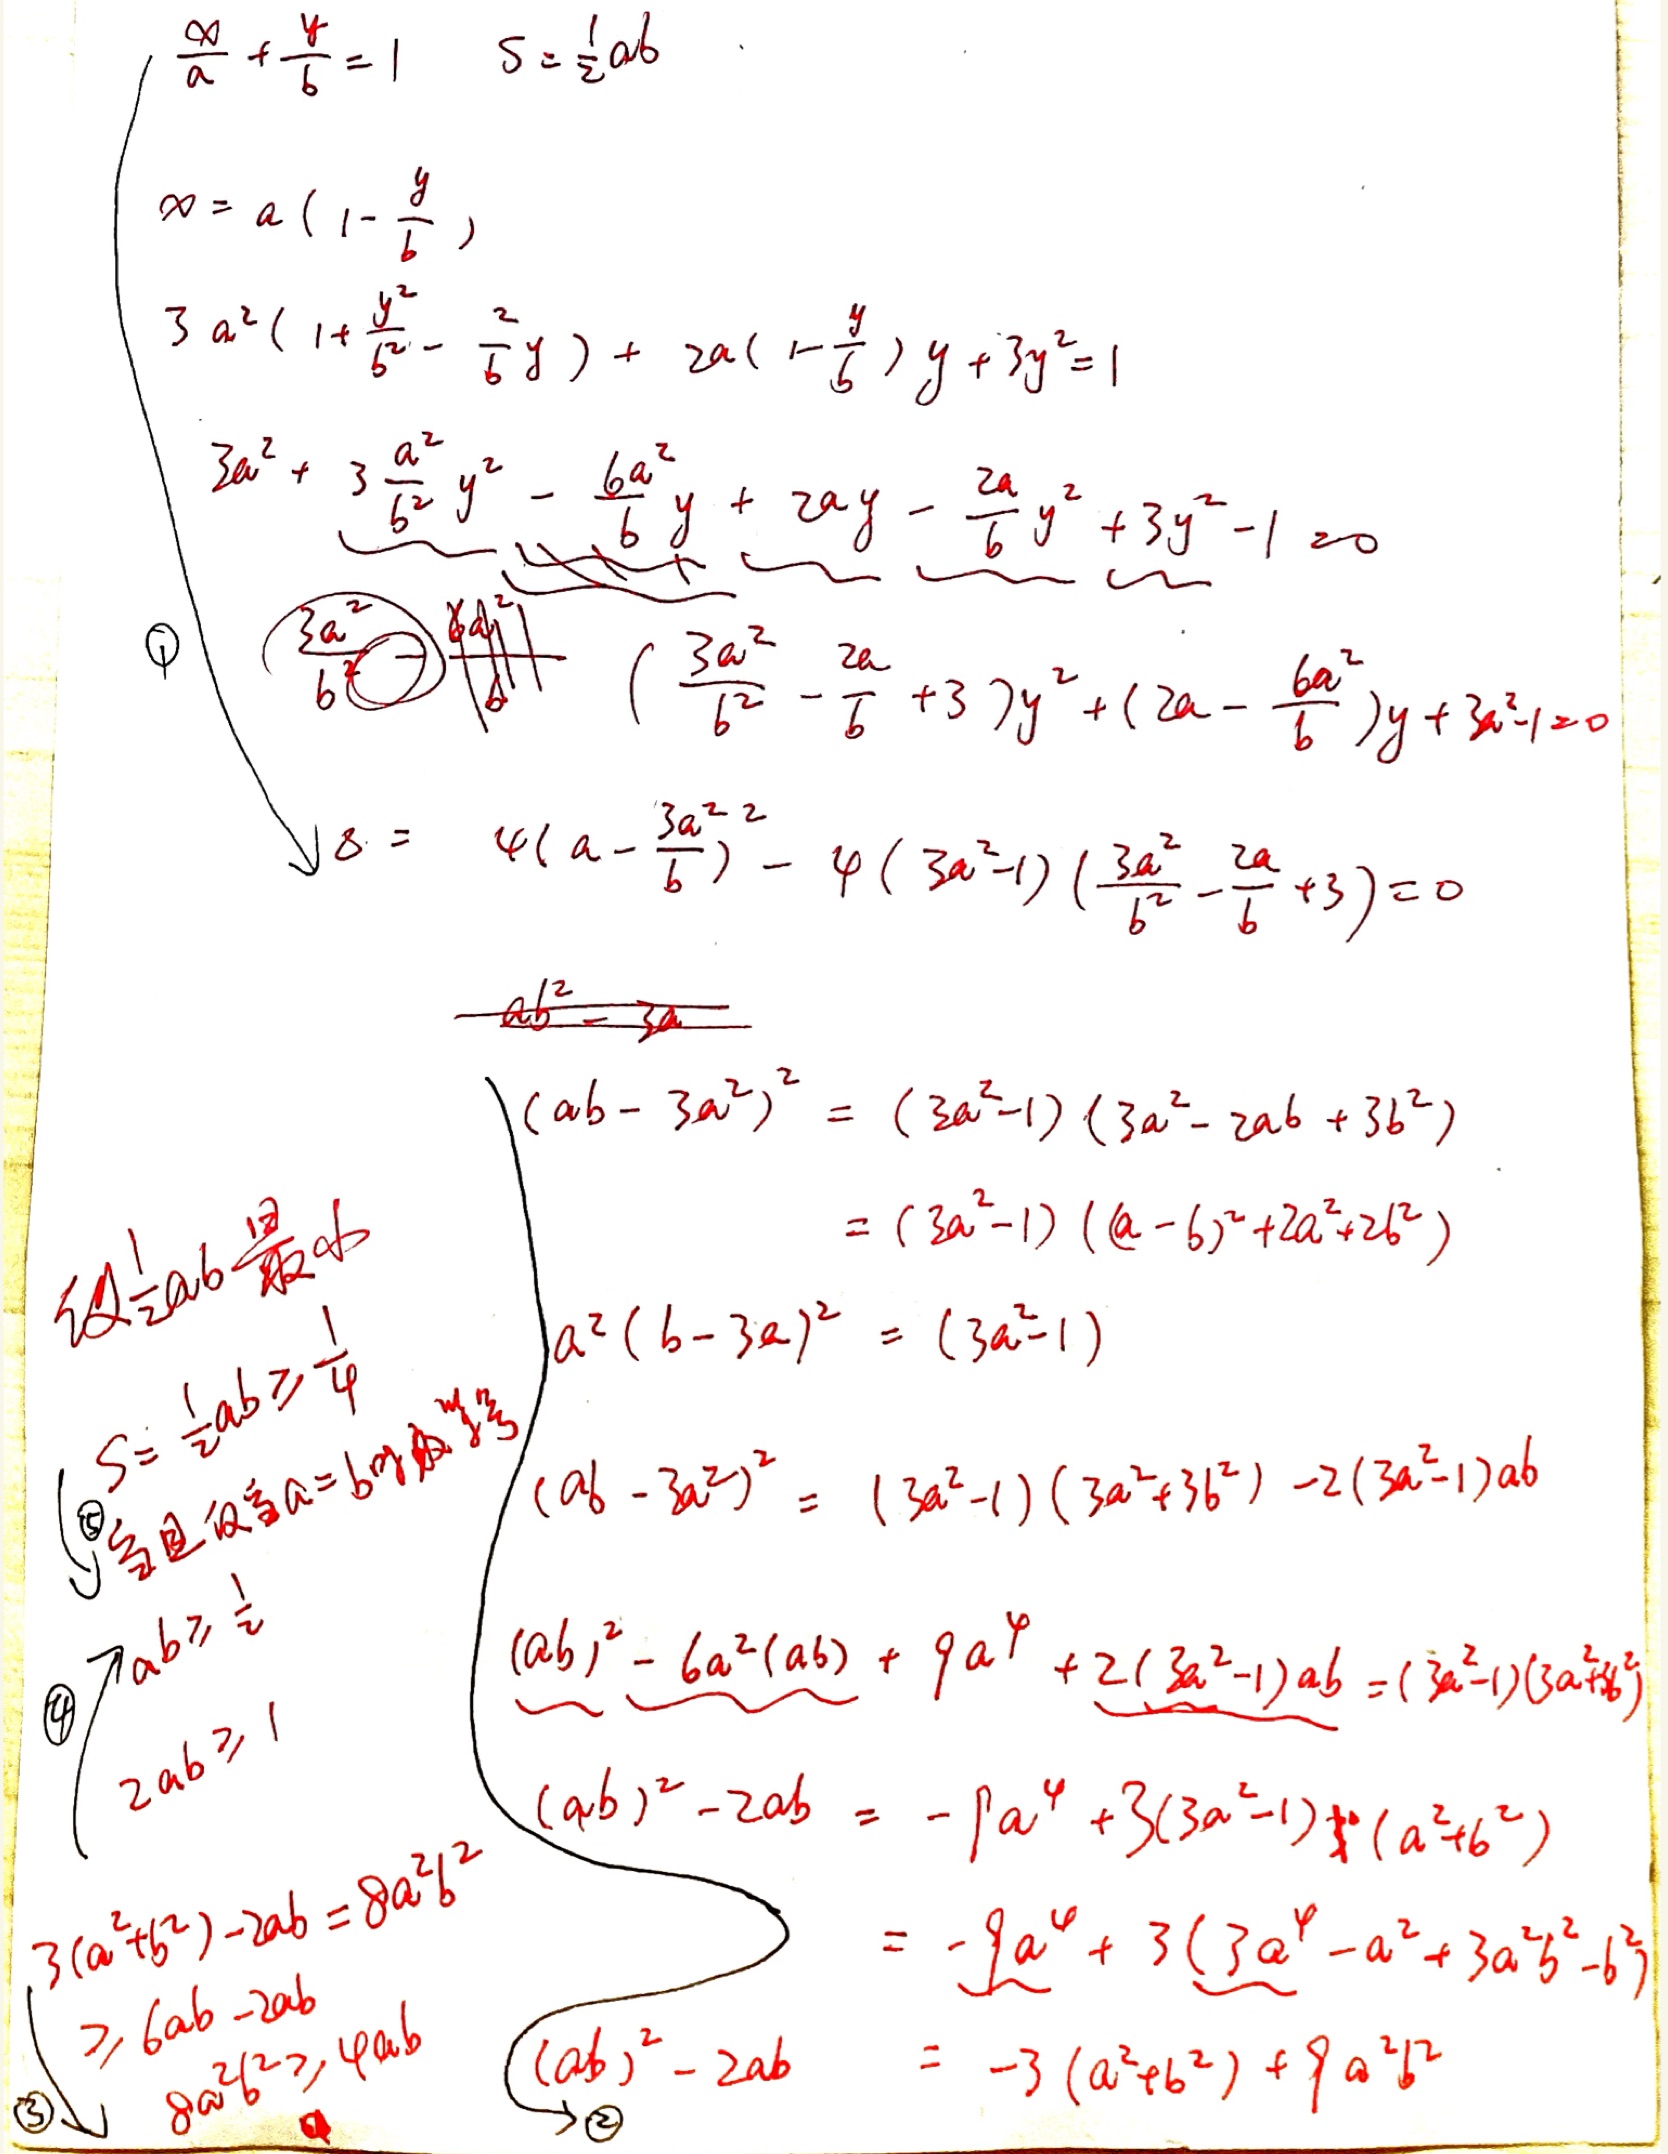 x/a + y/b = 1    S = 1/2 ab
x = a(1 - y/b)
3a²(1 + y²/b² - 2/b y) + 2a(1 - y/b)y + 3y² = 1
3a² + 3 a²/b² y² - 6a²/b y + 2ay - 2a/b y² + 3y² - 1 = 0
① (3a²/b² - 2a/b + 3)y² + (2a - 6a²/b)y + 3a² - 1 = 0
Δ = 4(a - 3a²/b)² - 4(3a² - 1)(3a²/b² - 2a/b + 3) = 0
(ab - 3a²)² = (3a² - 1)(3a² - 2ab + 3b²)
= (3a² - 1)((a - b)² + 2a² + 2b²)
a²(b - 3a)² = (3a² - 1)
(ab - 3a²)² = (3a² - 1)(3a² + 3b²) - 2(3a² - 1)ab
(ab)² - 6a²(ab) + 9a⁴ + 2(3a² - 1)ab = (3a² - 1)(3a² + 3b²)
(ab)² - 2ab = -9a⁴ + 3(3a² - 1)(a² + b²)
= -9a⁴ + 3(3a⁴ - a² + 3a²b² - b²)
(ab)² - 2ab = -3(a² + b²) + 9a²b²
②
3(a² + b²) - 2ab = 8a²b²
≥ 6ab - 2ab
③ 8a²b² ≥ 4ab
2ab ≥ 1
④ ab ≥ 1/2
1/2 ab 最小
S = 1/2 ab ≥ 1/4
⑤ 当且仅当a=b时取等号